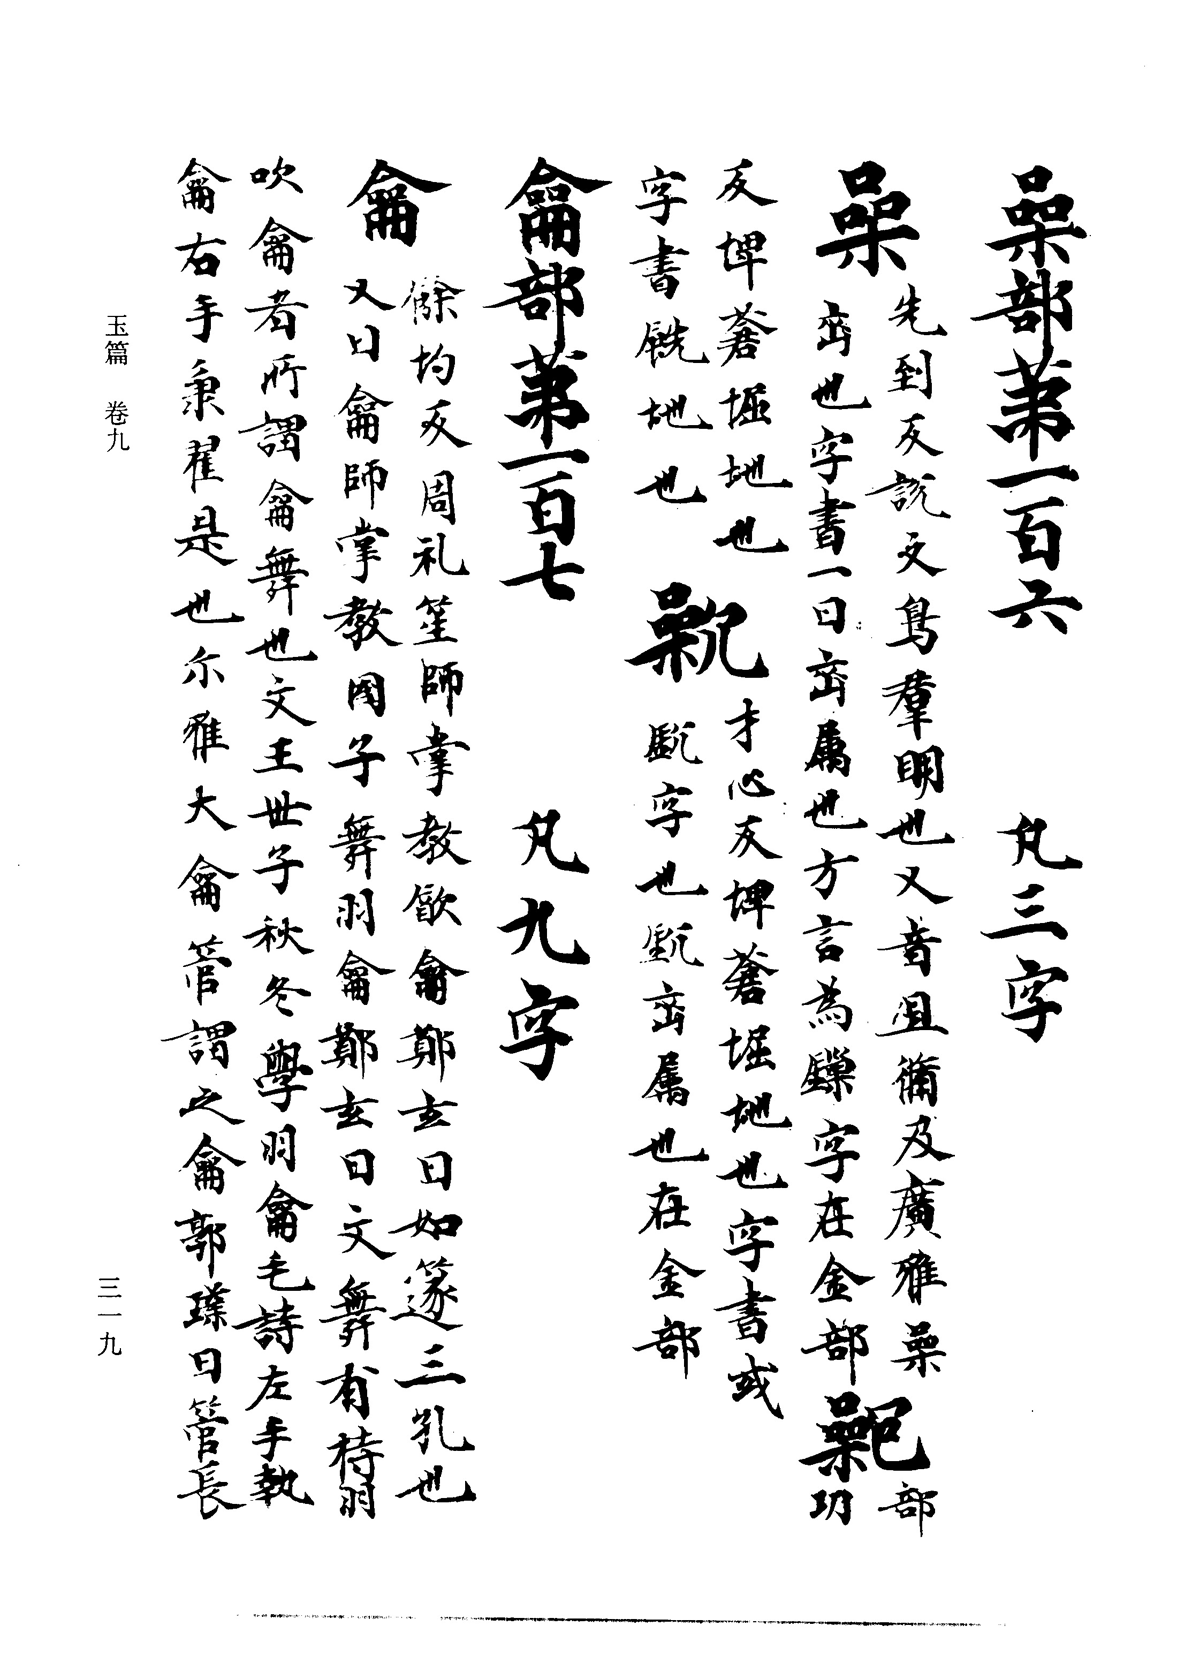 喿部苐一百六　凡三字
喿
先到反說文鳥羣明也又音且備及廣雅喿
臿也字書一曰臿属也方言為鐰字在金部
部
玏
反埤蒼堀地也
字書銑地也
才心反埤蒼堀地也字書或
臿属也在金部
龠部苐一百七　凡九字
龠
餘均反周礼笙師掌教歙龠鄭玄曰如篴三孔也
又曰龠師掌教国子舞羽龠鄭玄曰文舞有持羽
吹龠者所謂龠舞也文王世子秋冬學羽龠毛詩左手執
龠右手秉翟是也尒雅大龠管謂之龠郭璞曰管長
玉篇　卷九
三一九